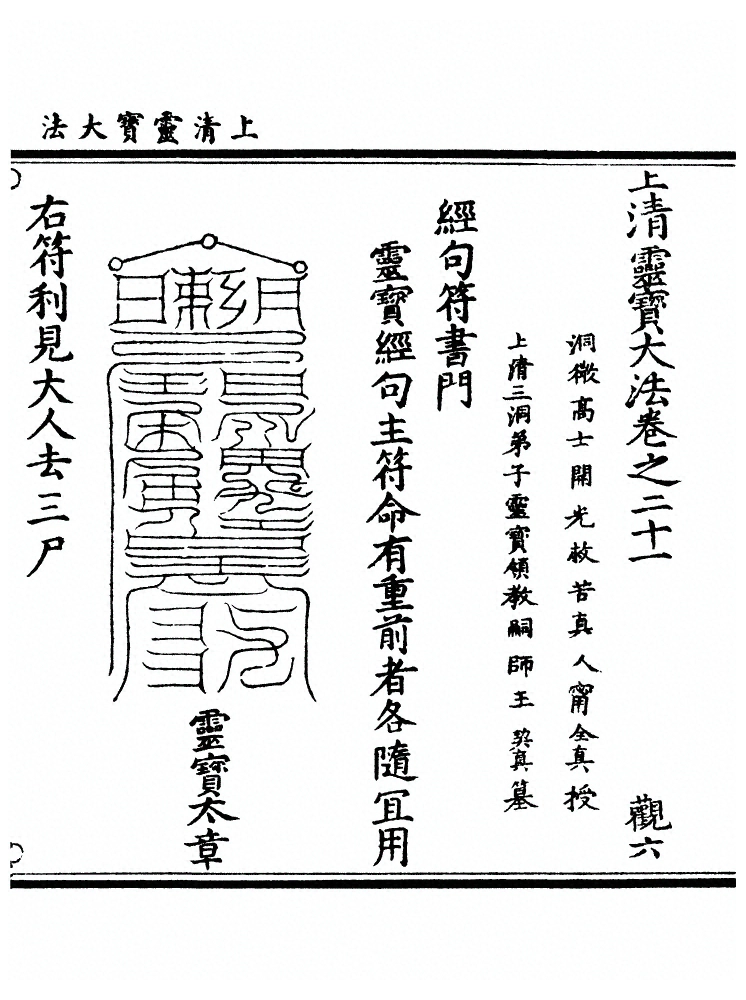 上清靈寶大法
上清靈寶大法卷之二十一　觀六
洞微高士開光救苦真人甯全真授
上清三洞弟子靈寶領教嗣師王契真纂
經句符書門
靈寶經句主符命有重前者各隨冝用
靈寶大章
右符利見大人去三尸